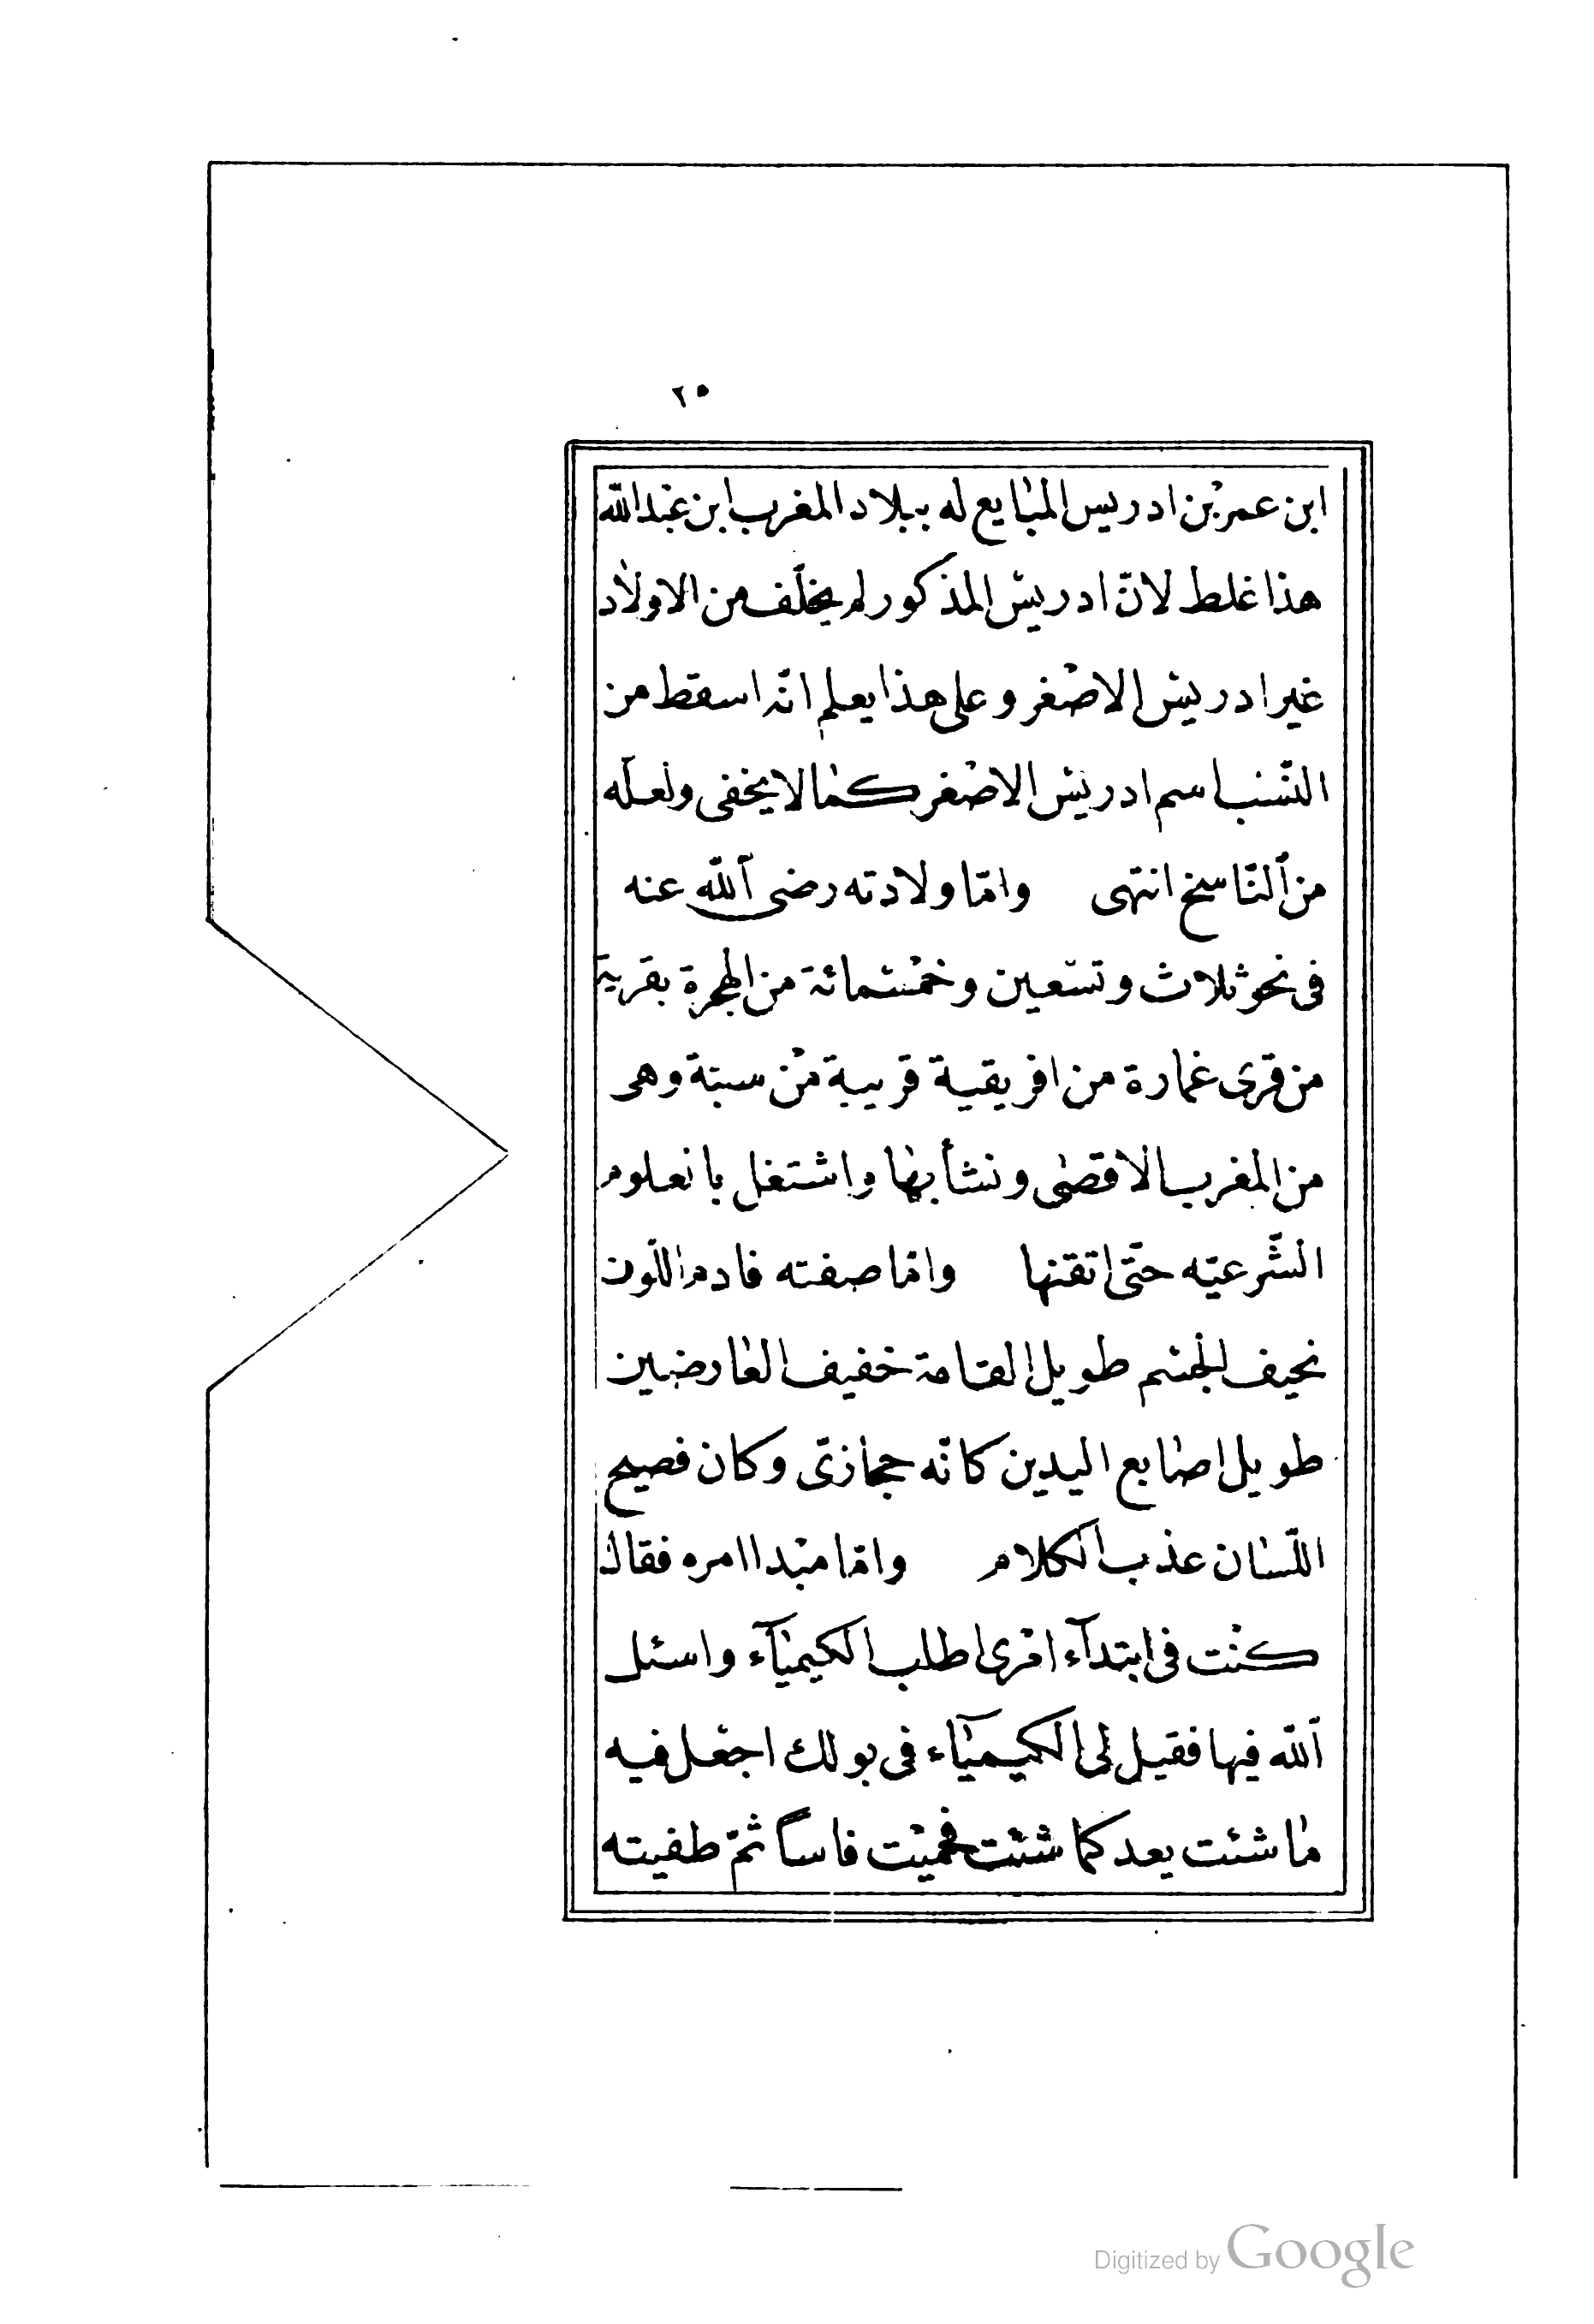 ٢٥
ابن عمر بن ادريس المبايع له ببلاد المغرب ابن عبد الله
هذا غلط لانّ ادريس المذكور لم يخلّف من الاولاد
غير ادريس الاصغر وعلى هذا يعلم انّه اسقط من
النّسب اسم ادريس الاصغر كما لا يخفى ولعلّه
من النّاسخ انتهى وامّا ولادته رضى الله عنه
فى نحو ثلاث وتسعين وخمسمائة من الهجرة بقرية
من قرى غمارة من افريقية قريبة من سبتة وهى
من المغرب الاقصى ونشأ بها واشتغل بالعلوم
الشّرعيّه حتّى اتقنها وامّا صفته فادم اللّون
نحيف الجسم طويل القامة خفيف العارضين
طويل اصابع اليدين كانّه حجازىّ وكان فصيح
اللّسان عذب الكلام وامّا مبدا امره فقال
كنت فى ابتدآء امرى اطلب الكيميآء واسئل
الله فيها فقيل لى الكيميآء فى بولك اجعل فيه
ما شئت يعد كما شئت فحميت فاساً ثمّ طفيته
Digitized by Google